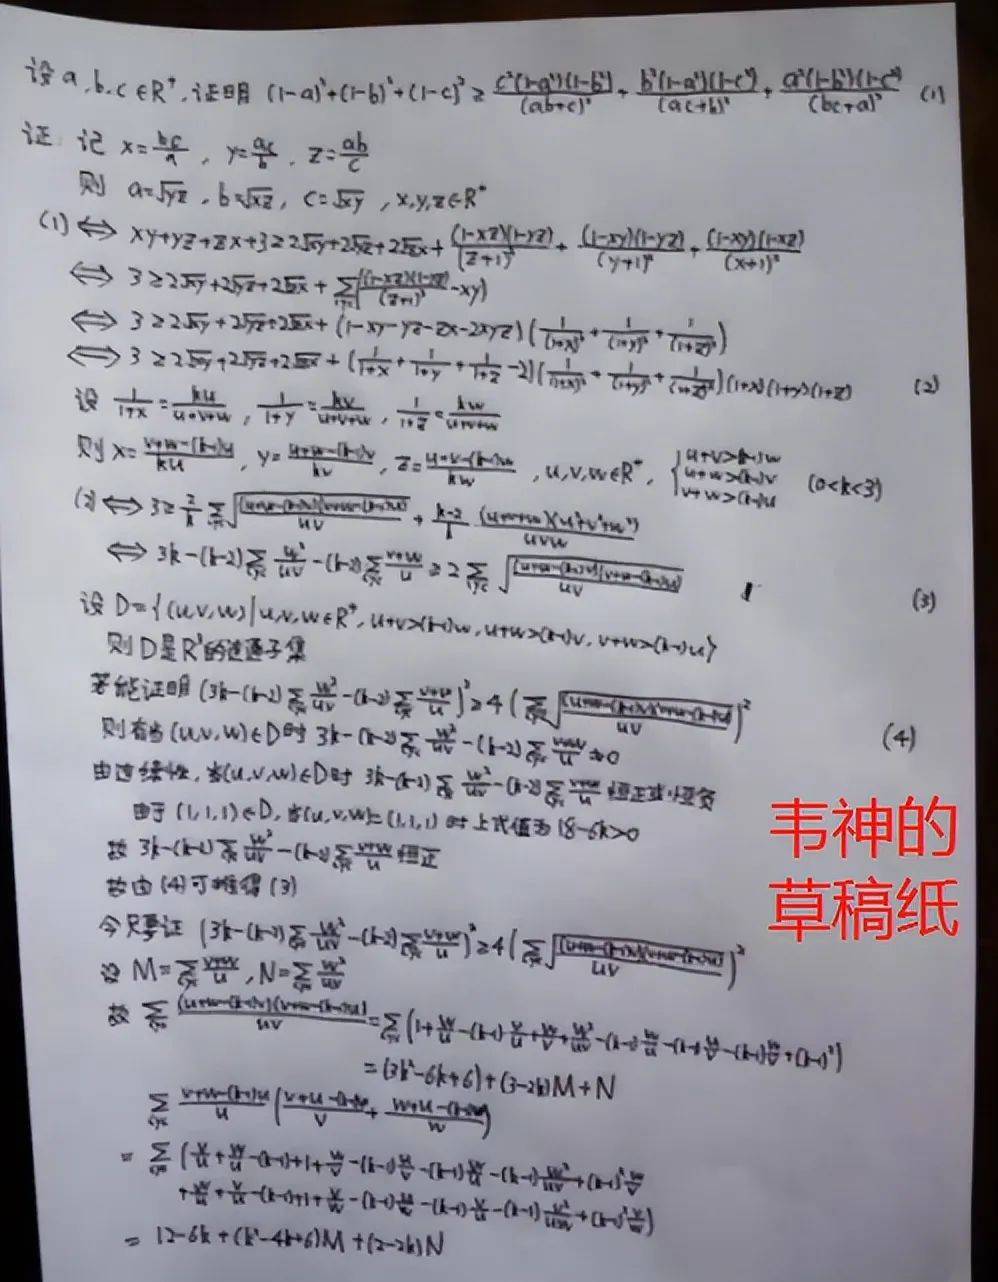 设 a,b,c∈R⁺,证明 (1-a)²+(1-b)²+(1-c)² ≥ c²(1-a²)(1-b²)/(ab+c)² + b²(1-a²)(1-c²)/(ac+b)² + a²(1-b²)(1-c²)/(bc+a)² (1)
证: 记 x=bc/a, y=ac/b, z=ab/c
则 a=√yz, b=√xz, c=√xy, x,y,z∈R⁺
(1) ⟺ xy+yz+zx+3≥2√xy+2√yz+2√zx+(1-xz)(1-yz)/(z+1)²+(1-xy)(1-yz)/(y+1)²+(1-xy)(1-xz)/(x+1)²
⟺ 3≥2√xy+2√yz+2√zx+∑((1-xz)(1-yz)/(z+1)²-xy)
⟺ 3≥2√xy+2√yz+2√zx+(1-xy-yz-zx-2xyz)(1/(1+x)²+1/(1+y)²+1/(1+z)²)
⟺ 3≥2√xy+2√yz+2√zx+(1/(1+x)+1/(1+y)+1/(1+z)-2)(1/(1+x)²+1/(1+y)²+1/(1+z)²)(1+x)(1+y)(1+z) (2)
设 1/(1+x)=ku/(u+v+w), 1/(1+y)=kv/(u+v+w), 1/(1+z)=kw/(u+v+w)
则 x=(v+w-(k-1)u)/ku, y=(u+w-(k-1)v)/kv, z=(u+v-(k-1)w)/kw, u,v,w∈R⁺, {u+v>(k-1)w u+w>(k-1)v v+w>(k-1)u (0<k<3)
(2) ⟺ 3≥2/k ∑√((u+w-(k-1)v)(v+w-(k-1)u)/uv) + (k-2)/k (u+v+w)(u²+v²+w²)/uvw
⟺ 3k-(k-2)∑w²/uv-(k-2)∑(v+w)/u≥2∑√((u+w-(k-1)v)(v+w-(k-1)u)/uv) (3)
设 D={(u,v,w)|u,v,w∈R⁺, u+v>(k-1)w, u+w>(k-1)v, v+w>(k-1)u}
则D是R³的连通子集
若能证明 (3k-(k-2)∑w²/uv-(k-2)∑(v+w)/u)²≥4(∑√((u+w-(k-1)v)(v+w-(k-1)u)/uv))² (4)
则有当(u,v,w)∈D时 3k-(k-2)∑w²/uv-(k-2)∑(v+w)/u≠0
由连续性,当(u,v,w)∈D时 3k-(k-2)∑w²/uv-(k-2)∑(v+w)/u恒正或恒负
由于(1,1,1)∈D,当(u,v,w)=(1,1,1)时上式值为18-6k>0
故 3k-(k-2)∑w²/uv-(k-2)∑(v+w)/u恒正
故由(4)可推得(3)
今只要证 (3k-(k-2)∑w²/uv-(k-2)∑(v+w)/u)²≥4(∑√((u+w-(k-1)v)(v+w-(k-1)u)/uv))²
设 M=∑(v+w)/u, N=∑w²/uv
故 ∑(u+w-(k-1)v)(v+w-(k-1)u)/uv=∑(1+w/u-(k-1)v/u+w/v+w²/uv-(k-1)w/u-(k-1)u/v-(k-1)w/v+(k-1)²)
=(3k²-6k+6)+(3-2k)M+N
∑(v+w-(k-1)u)/u((v+u-(k-1)w)/v+(w+u-(k-1)v)/w)
=∑(v/u+w/u-(k-1)+1+w/v-(k-1)u/v-(k-1)w/u-(k-1)w²/uv+(k-1)²w/v
+w/u+v/u-(k-1)+1+v/w-(k-1)u/w-(k-1)v/u-(k-1)v²/uw+(k-1)²v/w)
=12-6k+(k²-4k+6)M+(2-2k)N
韦神的
草稿纸